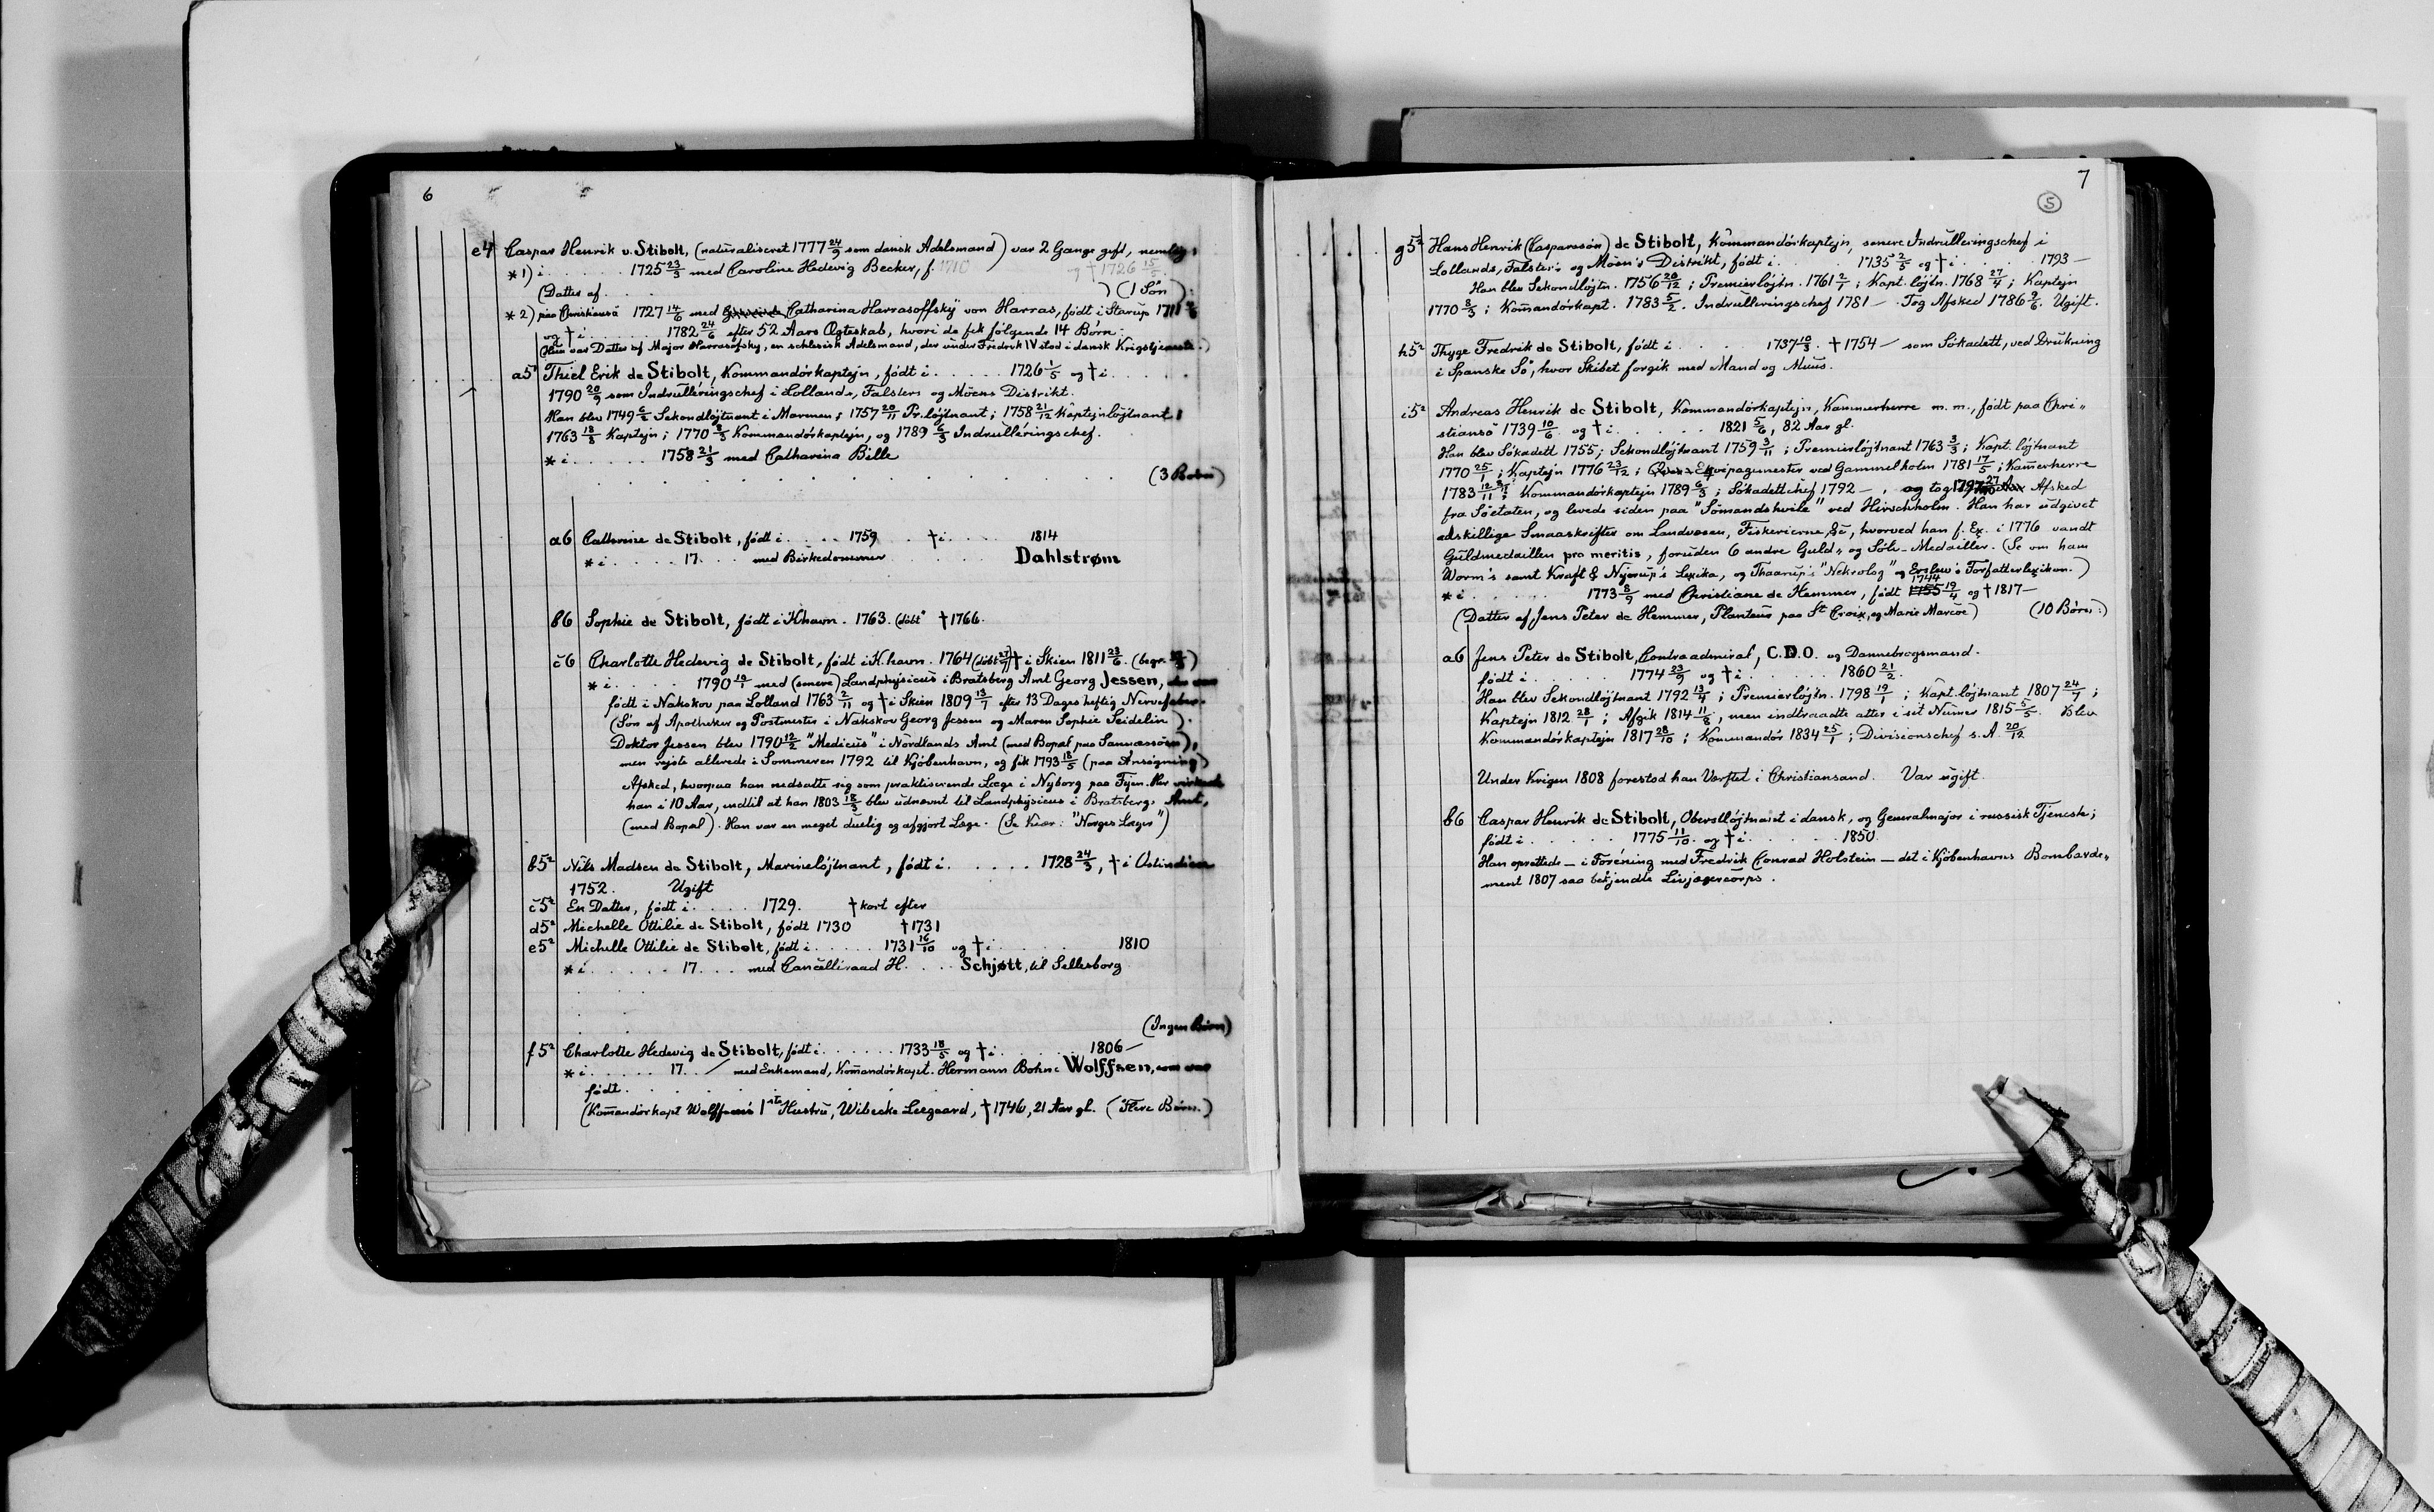 6
e4 Caspar Henrik v. Stibolt, (naturaliseret 1777 24/9 som dansk Adelsmand) var 2 Gange gift, nemlig:
*1) i . . . . . 1725 23/3 med Caroline Hedevig Becker, f. 1710 og † 1726 15/5
(Datter af . . . . . ) (1 Søn)
*2) paa Christiansö 1727 14/6 med Catharina Harrasoffskÿ von Harras, født i Starup 1711
og † i . . . . . 1782 24/6 efter 52 Aars Ægteskab, hvori de fik følgende 14 Børn:
(Hun var Datter af Major Harrasofsky, en schlesisk Adelsmand, der under Fredrik IV stod i dansk Krigstjeneste.)
a5¹ Thiel Erik de Stibolt, Kommandörkaptejn, født i . . . . . 1726 1/5 og † i . . . . .
1790 20/9 som Indrulleringschef i Lollands, Falsters og Möens Distrikt.
Han blev 1749 Sekondlöjtnant i Marinen; 1757 20/11 Pr. löjtnant; 1758 21/12 Kaptejnlöjtnant
1763 18/3 Kaptejn; 1770 8/3 Kommandörkaptejn, og 1789 6/3 Indrulleringschef.
* i . . . . . 1758 21/3 med Catharina Bille
(3 Børn)
a6 Cathrine de Stibolt, født i . . . . 1759 . . † i . . . . 1814
* i . . . . . 17 . . . . med Birkedommer . . . . . Dahlstrøm
b6 Sophie de Stibolt, født i Khavn. 1763. (döbt † 1766.
c6 Charlotte Hedevig de Stibolt, født i K.havn. 1764 (döbt 27/7) † i Skien 1811 23/6. (begr.
* i . . . . . 1790 19/1 med (senere) Landphysicus i Bratsberg Amt Georg Jessen,
født i Nakskov paa Lolland 1763 2/11 og † i Skien 1809 13/7 efter 13 Dages heftig Nervefeber.
(Søn af Apotheker og Postmester i Nakskov Georg Jessen og Maren Sophie Seidelin).
Doktor Jessen blev 1790 12/2 "Medicus" i Nordlands Amt (med Bopæl paa Sannæssöen),
men rejste allerede i Sommeren 1792 til Kjöbenhavn, og fik 1793 18/5 (paa Ansögning)
Afsked, hvorpaa han nedsatte sig som praktiserende Læge i Nyborg paa Fyen. Her virkede
han i 10 Aar, indtil at han 1803 18/3 blev udnævnt til Landphysicus i Bratsbergs Amt,
(med Bopæl). Han var en meget duelig og afgjort Læge. (Se Kiær: "Norges Læger")
b5² Nils Madsen de Stibolt, Marinelöjtnant, født i . . . . . 1728 24/3, † i Ostindien
1752. Ugift
c5² En Datter, født i . . . . . 1729. † kort efter
d5² Michelle Ottilie de Stibolt, født 1730 † 1731
e5² Michelle Ottilie de Stibolt, født i . . . . . 1731 16/10 og † i . . . . . 1810
* i . . . . . 17 . . . med Cancelliraad H. . . . Schjøtt, til Sellesborg
(Ingen Børn)
f5² Charlotte Hedevig de Stibolt, født i . . . . . 1733 18/5 og † i . . . . . 1806 —
* i . . . . . 17 . . — med Enkemand, Komandörkapt. Hermann Bohne Wolffsen, som var
født . . . . .
(Komandörkapt Wolffsens 1ste Hustru, Wibecke Leegaard, † 1746, 21 Aar gl. (Flere Børn.)
7
5
g5² Hans Henrik (Casparssön) de Stibolt, Kommandörkaptejn, senere Indrulleringschef i
Lollands, Falster's og Möen's Distrikt, født i . . . . . 1735 2/5 og † i . . . . . 1793 —
Han blev Sekondlöjtn. 1756 20/12; Premierlöjtn. 1761 2/7; Kapt. löjtn. 1768 27/4; Kaptejn
1770 8/3; Komandörkapt. 1783 5/2. Indrulleringschef 1781 — . Tog Afsked 1786 9/6. Ugift.
h5² Thyge Fredrik de Stibolt, født i . . . . . 1737 10/3. † 1754 — som Sökadett, ved Drukning
i Spanske Sö, hvor Skibet forgik med Mand og Muus.
i5² Andreas Henrik de Stibolt, Kommandörkaptejn, Kammerherre m. m., født paa Chri„
stiansö 1739 10/6 og † i . . . . . 1821 5/6, 82 Aar gl.
Han blev Sökadett 1755; Sekondlöjtnant 1759 3/11; Premierlöjtnant 1763 3/3; Kapt. löjtnant
1770 25/1; Kaptejn 1776 23/12; Ekvipagemester ved Gammelholm 1781 17/5; Kamerherre
1783 12/11; Kommandörkaptejn 1789 6/3; Sökadettchef 1792 — , og tog 1797 27 Afsked
fra Söetaten, og levede siden paa "Sömandshvile" ved Hirschholm. Han har udgivet
adskillige Smaaskrifter om Landvæsen, Fiskerierne &c, hvorved han f. Ex. i 1776 vandt
Guldmedaillen pro meritis, foruden 6 andre Guld„ og Sölv-Medailler. (Se om ham
Worm's samt Kraft & Nyerup's Lexika, og Thaarup's "Nekrolog" og Erslew's Forfatterlexikon.)
* i . . . . . 1773 8/9 med Christiane de Hemmer, født 1744 19/4 og † 1817 —
(Datter af Jens Peter de Hemmer, Planteur paa St Croix, og Marie Marcoe) (10 Børn:)
a6 Jens Peter de Stibolt, Contraadmiral, C.D.O. og Dannebrogsmand.
født i . . . . . 1774 23/9 og † i . . . . . 1860 21/2.
Han blev Sekondlöjtnant 1792 13/4; Premierlöjtn. 1798 19/1; Kapt. löjtnant 1807 24/7;
Kaptejn 1812 28/1; Afgik 1814 11/8, men indtraadte atter i sit Numer 1815 5/5. Blev
Kommandörkaptejn 1817 28/10; Kommandör 1834 25/1; Divisionschef s. A. 20/12
Under Krigen 1808 forestod han Værftet i Christiansand. Var ugift.
b6 Caspar Henrik de Stibolt, Oberstlöjtnant i dansk, og Generalmajor i russisk Tjeneste;
født i . . . . . 1775 11/10. og † i . . . . . 1850.
Han oprettede — i Forening med Fredrik Conrad Holstein — det i Kjöbenhavns Bombarde„
ment 1807 saa bekjendte Livjægercorps.